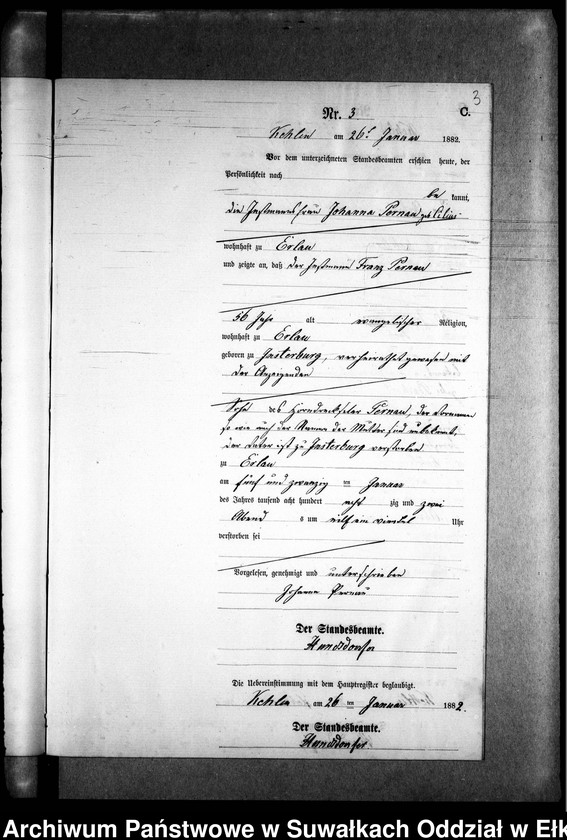 3
Nr. 3 C.
am 26t Januar 1882.
Vor dem unterzeichneten Standesbeamten erschien heute, der
Persönlichkeit nach
be kannt,
die Instmannsfrau Johanna Pernau geb
wohnhaft zu Erlau
und zeigte an, daß der Instmann Franz Pernau
56 Jahr alt evangelischer Religion,
wohnhaft zu Erlau
geboren zu Insterburg, verheirathet gewesen mit
der Anzeigenden
Sohn des Horndrechsler Pernau, der Vorname
so wie auch der Name der Mutter sind unbekannt,
der Vater ist zu Insterburg verstorben
zu Erlau
am fünf und zwanzig ten Januar
des Jahres tausend acht hundert acht zig und zwei
Abend s um eilf ein viertel Uhr
verstorben sei
Vorgelesen, genehmigt und unterschrieben
Johanna Pernau
Der Standesbeamte.
Die Uebereinstimmung mit dem Hauptregister beglaubigt.
am 26 ten Januar 1882.
Der Standesbeamte.
Archiwum Państwowe w Suwałkach Oddział w Ełk